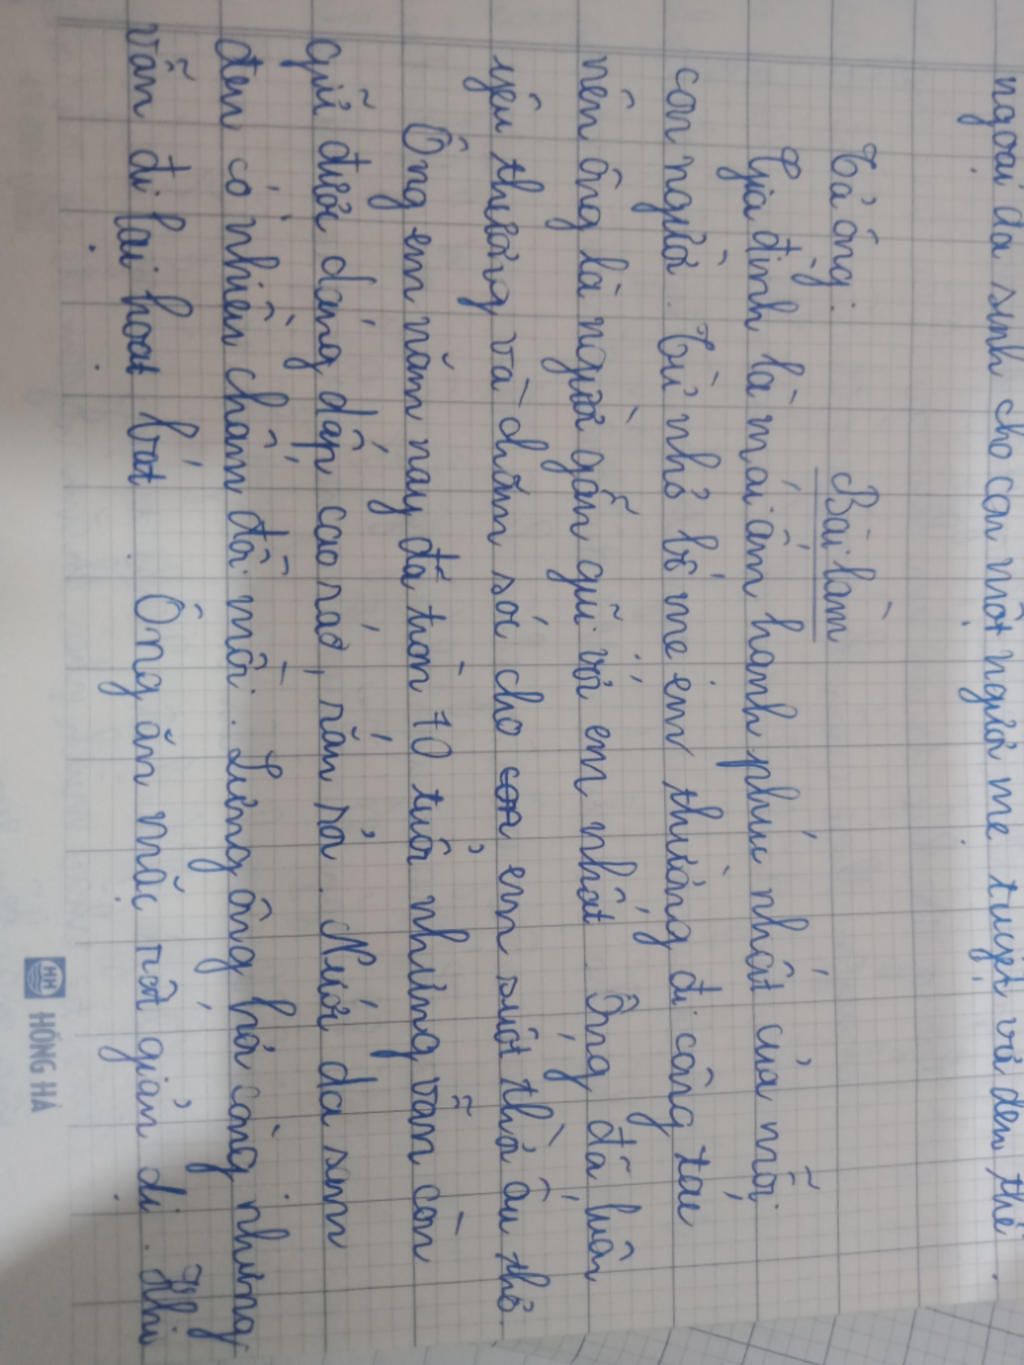 ngoài da sinh cho con một người mẹ tuyệt vời đến thế.
Tả ông.
Bài làm
Gia đình là mái ấm hạnh phúc nhất của mỗi
con người. Từ nhỏ bố mẹ em thường đi công tác
nên ông là người gần gũi với em nhất. Ông đã luôn
yêu thương và chăm sóc cho con em suốt thời ấu thơ
Ông em năm nay đã tròn 70 tuổi nhưng vẫn còn
giữ được dáng dấp cao ráo, rắn rỏi. Nước da sạm
đen có nhiều chấm đồi mồi. Lưng ông hơi còng nhưng
vẫn đi lại hoạt bát. Ông ăn mặc rất giản dị. Khi
HỒNG HÀ